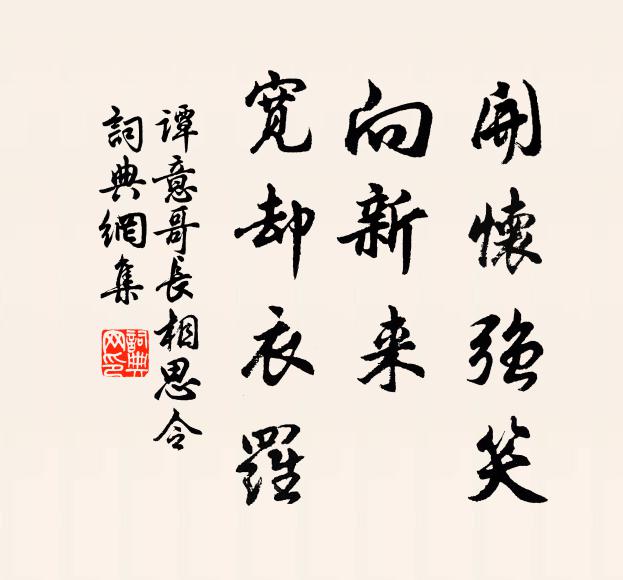 開懷強笑
向新来
寬却衣羅
譚意哥長相思令
詞典網集
詞典网印